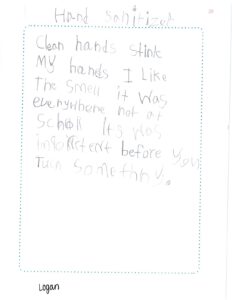 Hand Sanitized
Clean hands stink
My hands I Like
The Smell it was
everywhere not at
School Its was
before you
Turn something.
Logan